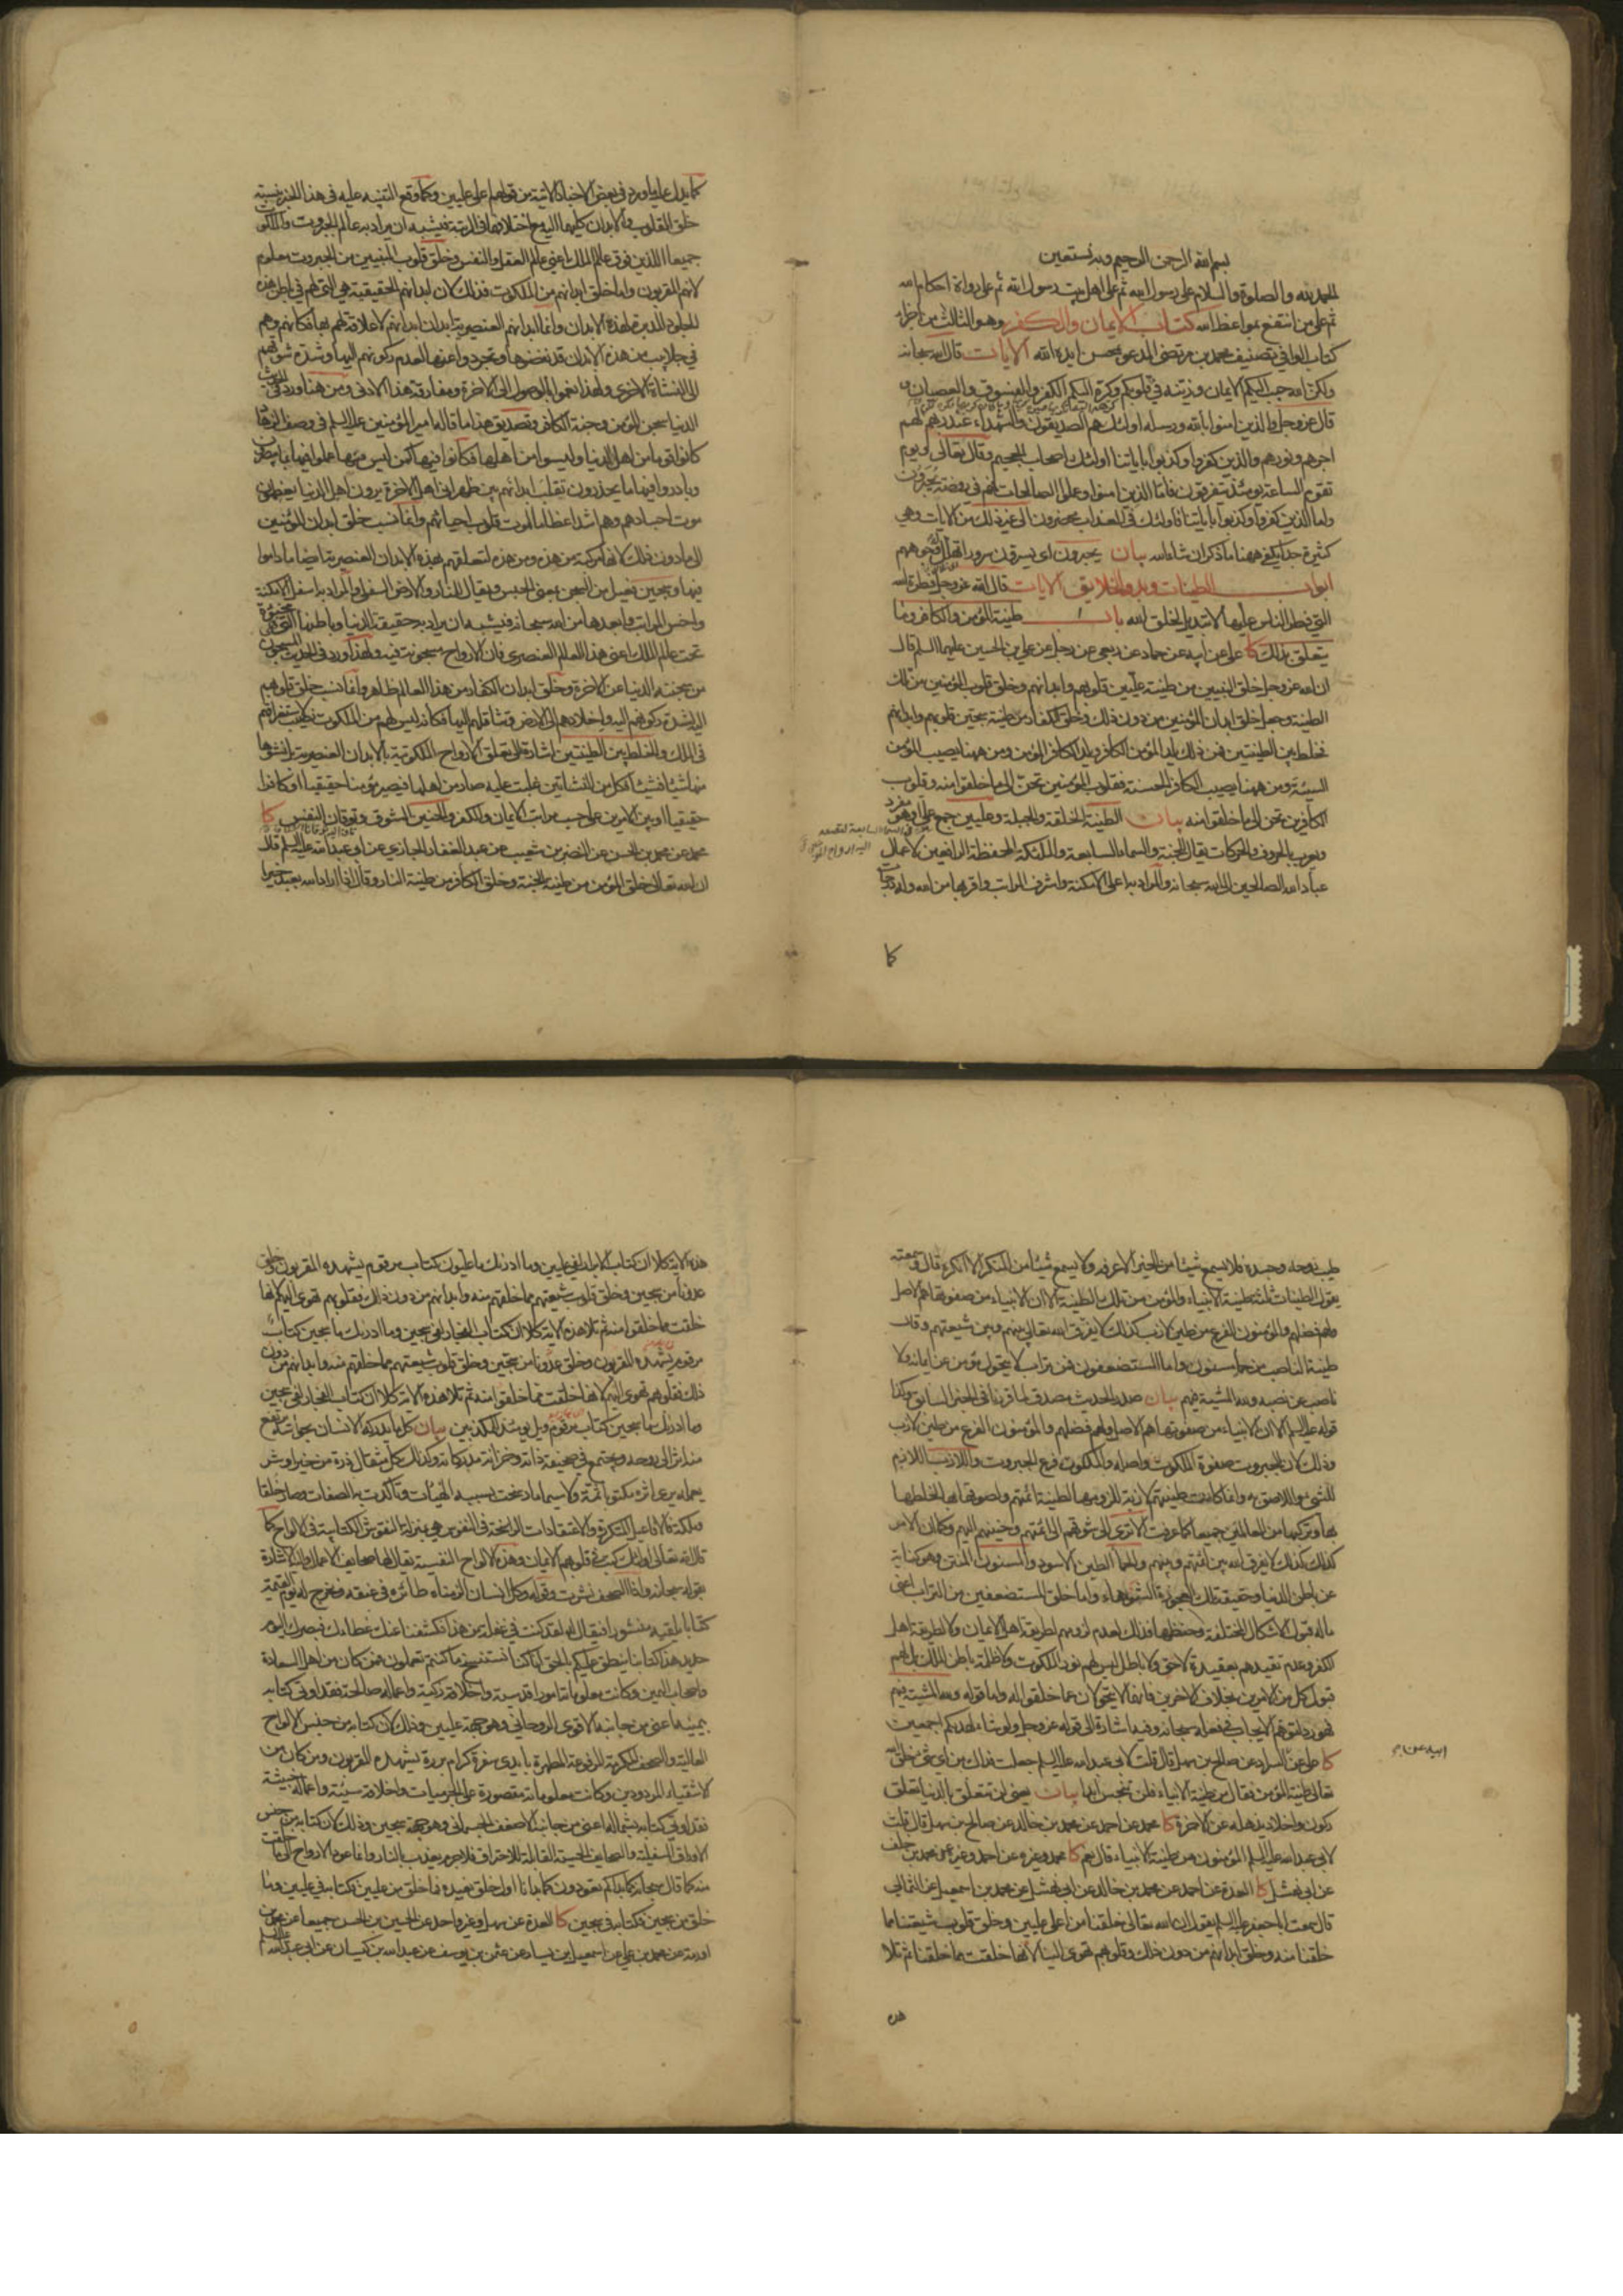 بسم الله الرحمن الرحيم وبه نستعين
الحمد لله والصلوة والسلام على رسول الله ثم على اهل بيت رسول الله ثم على رواة احكام الله
ثم على من انتفع بمواعظ الله كتاب الايمان والكفر وهو الثالث من اجزاء
كتاب الوافي تصنيف محمد بن مرتضى المدعو بمحسن ايده الله الايات قال الله سبحانه
ولكن الله حبب اليكم الايمان وزينه في قلوبكم وكره اليكم الكفر والفسوق والعصيان و
قال عز وجل والذين امنوا بالله ورسله اولئك هم الصديقون والشهداء عند ربهم لهم
اجرهم ونورهم والذين كفروا وكذبوا باياتنا اولئك اصحاب الجحيم وقال تعالى ويوم
تقوم الساعة يومئذ يتفرقون فاما الذين امنوا وعملوا الصالحات فهم في روضة يحبرون
واما الذين كفروا وكذبوا باياتنا فاولئك في العذاب محضرون الى غير ذلك من الايات وهي
كثيرة جدا يكفي ههنا ما ذكر ان شاء الله بيان يحبرون اى يسرون سرورا تهلل له وجوههم
ابواب الطينات وبدو الخلايق الايات قال الله عز وجل فطرة الله
التي فطر الناس عليها لا تبديل لخلق الله باب ١ طينة المؤمن والكافر وما
يتعلق بذلك كا على عن ابيه عن حماد عن ربعي عن رجل عن علي بن الحسين عليهما السلم قال
ان الله عز وجل خلق النبيين من طينة عليين قلوبهم وابدانهم وخلق قلوب المؤمنين من تلك
الطينة وجعل خلق ابدان المؤمنين من دون ذلك وخلق الكفار من طينة سجين قلوبهم وابدانهم
فخلط بين الطينتين فمن ذلك يلد المؤمن الكافر ويلد الكافر المؤمن ومن ههنا يصيب المؤمن
السيئة ومن ههنا يصيب الكافر الحسنة فقلوب المؤمنين تحن الى ما خلقوا منه وقلوب
الكافرين تحن الى ما خلقوا منه بيان الطينة الخلقة والجبلة وعليين جمع على او هو مفرد
ويعرب بالحروف والحركات يقال للجنة والسماء السابعة والملائكة الحفظة الرافعين لاعمال
عباد الله الصالحين الى الله سبحانه والمراد به اعلى الامكنة واشرف المراتب واقربها من الله وله درجات
كما
كما يدل عليه ما ورد في بعض الاخبار الاتية من قولهم اعلى عليين وكما وقع التنبيه عليه في هذا الخبر بنسبة
خلق القلوب والابدان كليهما اليه مع اختلافهما في الرتبة فيشبه ان يراد به عالم الجبروت والملكوت
جميعا اللذين فوق عالم الملك اعني عالم العقل والنفس وخلق قلوب النبيين من الجبروت معلوم
لانهم المقربون واما خلق ابدانهم من الملكوت فذلك لان ابدانهم الحقيقية هي التي لهم في باطن هذه
الجلود المدبرة لهذه الابدان وانما ابدانهم العنصرية ابدان ابدانهم لا علاقة لهم بها فكانهم وهم
في جلابيب من هذه الابدان قد نفضوها وتجردوا عنها لعدم ركونهم اليها وشدة شوقهم
الى النشاة الاخرى ولهذا نعموا بالوصول الى الاخرة ومفارقة هذا الادنى ومن هنا ورد في الحديث
الدنيا سجن المؤمن وجنة الكافر وتصديق هذا ما قاله امير المؤمنين عليه السلم في وصف الزهاد
كانوا قوما من اهل الدنيا وليسوا من اهلها فكانوا فيها كمن ليس منها عملوا فيها بما يبصرون
وبادروا فيها ما يحذرون تقلب ابدانهم بين ظهراني اهل الاخرة يرون اهل الدنيا يعظمون
موت اجسادهم وهم اشد اعظاما لموت قلوب احيائهم وانما نسب خلق ابدان المؤمنين
الى ما دون ذلك لانها مركبة من هذه ومن هذه لتعلقهم بهذه الابدان العنصرية ايضا ما داموا
فيها وسجين فعيل من السجن بمعنى الحبس ويقال للنار والارض السفلى والمراد به اسفل الامكنة
واخس المراتب وابعدها من الله سبحانه فيشبه ان يراد به حقيقة الدنيا وباطنها التي هي مخبوءة
تحت عالم الملك اعني هذا العالم العنصري فان الارواح مسجونة فيه ولهذا ورد في الحديث المسجون
من سجنته الدنيا عن الاخرة وخلق ابدان الكفار من هذا العالم ظاهر وانما نسب خلق قلوبهم
اليه لشدة ركونهم اليه واخلادهم الى الارض وتثاقلهم اليها فكانه ليس لهم من الملكوت نصيب لاستغراقهم
في الملك والخلط بين الطينتين اشارة الى تعلق الارواح الملكوتية بالابدان العنصرية بل نشوها
منها شيئا فشيئا فكل من النشاتين غلبت عليه صار من اهلها فيصير مؤمنا حقيقيا او كافرا
حقيقيا او بين الامرين على حسب مراتب الايمان والكفر والحنين الشوق وتوقان النفس كا
محمد عن محمد بن الحسن عن النضر بن شعيب عن عبد الغفار الجازي عن ابي عبد الله عليه السلم قال
ان الله تعالى خلق المؤمن من طينة الجنة وخلق الكافر من طينة النار وقال اذا اراد الله بعبد خيرا
طيب روحه وجسده فلا يسمع شيئا من الخير الا عرفه ولا يسمع شيئا من المنكر الا انكره قال وسمعته
يقول الطينات ثلثة طينة الانبياء والمؤمن من تلك الطينة الا ان الانبياء من صفوتها هم الاصل
ولهم فضلهم والمؤمنون الفرع من طين لازب كذلك لا يفرق الله تعالى بينهم وبين شيعتهم وقال
طينة الناصب من حما مسنون واما المستضعفون فمن تراب لا يتحول مؤمن عن ايمانه ولا
ناصب عن نصبه ولله المشية فيهم بيان صدر الحديث مصدق لما قررنا في الخبر السابق وكذا
قوله عليه السلم الا ان الانبياء من صفوتها هم الاصل ولهم فضلهم والمؤمنون الفرع من طين لازب
وذلك لان الجبروت صفوة الملكوت واصله والملكوت فرع الجبروت واللازب اللازم
للشئ واللاصق به وانما كانت طينتهم لازبة للزومها لطينة ائمتهم ولصوقها بها لخلطها
بها وتركبها من العالمين جميعا كما عرفت الا ترى الى شوقهم الى ائمتهم وحنينهم اليهم وكما ان الامر
كذلك كذلك لا يفرق الله بين ائمتهم وبينهم والحمأ الطين الاسود والمسنون المنتن وهو كناية
عن باطن الدنيا وحقيقة تلك العجوزة الشوهاء واما خلق المستضعفين من التراب اعني
ما له قبول الاشكال المختلفة وحفظها فذلك لعدم لزومهم لطريقة اهل الايمان ولا لطريقة اهل
الكفر وعدم تقيدهم بعقيدة لا حق ولا باطل ليس لهم نور الملكوت ولا ظلمة باطن الملك بل لهم
قبول كل من الامرين بخلاف الاخرين فانهما لا يتحولان عما خلقوا له واما قوله ولله المشية فيهم
فهو رد لتوهم الايجاب في فعله سبحانه وفيه اشارة الى قوله عز وجل ولو شاء لهديكم اجمعين
كا على عن السراد عن صالح بن سهل قال قلت لابي عبد الله عليه السلم جعلت فداك من اى شئ خلق الله
تعالى طينة المؤمن فقال من طينة الانبياء فلن تنجس ابدا بيان يعني لن تتعلق بالدنيا تعلق
ركون واخلاد يذهله عن الاخرة كا محمد عن احمد عن محمد بن خالد عن صالح بن سهل قال قلت
لابي عبد الله عليه السلم المؤمنون من طينة الانبياء قال نعم كا محمد وغيره عن احمد وغيره عن محمد بن خلف
عن ابي نهشل كا العدة عن احمد عن محمد بن خالد عن ابي نهشل عن محمد بن اسمعيل عن الثمالي
قال سمعت ابا جعفر عليه السلم يقول ان الله تعالى خلقنا من اعلى عليين وخلق قلوب شيعتنا مما
خلقنا منه وخلق ابدانهم من دون ذلك وقلوبهم تهوى الينا لانها خلقت مما خلقنا ثم تلا
هذه
هذه الاية كلا ان كتاب الابرار لفي عليين وما ادريك ما عليون كتاب مرقوم يشهده المقربون وخلق
عدونا من سجين وخلق قلوب شيعتهم مما خلقهم منه وابدانهم من دون ذلك فقلوبهم تهوى اليهم لانها
خلقت مما خلقوا منه ثم تلا هذه الاية كلا ان كتاب الفجار لفي سجين وما ادريك ما سجين كتاب
مرقوم يشهده المقربون وخلق عدونا من سجين وخلق قلوب شيعتهم مما خلقهم منه وابدانهم من دون
ذلك فقلوبهم تهوى اليهم لانها خلقت مما خلقوا منه ثم تلا هذه الاية كلا ان كتاب الفجار لفي سجين
وما ادريك ما سجين كتاب مرقوم ويل يومئذ للمكذبين بيان كل ما يدركه الانسان بحواسه يرتفع
منه اثر الى روحه ويجتمع في صحيفة ذاته وخزانة مدركاته وكذلك كل مثقال ذرة من خير او شر
يعمله يرى اثره مكتوبا ثمة ولا سيما ما رسخت بسببه الهيئات وتاكدت به الصفات وصار خلقا
وملكة فالافاعيل المتكررة والاعتقادات الراسخة في النفوس هي بمنزلة النقوش الكتابية في الالواح كما
قال الله تعالى اولئك كتب في قلوبهم الايمان وهذه الالواح النفسية يقال لها صحايف الاعمال واليه الاشارة
بقوله سبحانه واذا الصحف نشرت وقوله وكل انسان الزمناه طائره في عنقه ونخرج له يوم القيمة
كتابا يلقيه منشورا فيقال له لقد كنت في غفلة من هذا فكشفنا عنك غطاءك فبصرك اليوم
حديد هذا كتابنا ينطق عليكم بالحق انا كنا نستنسخ ما كنتم تعملون فمن كان من اهل السعادة
واصحاب اليمين وكانت معلوماته امورا قدسية واخلاقه زكية واعماله صالحة فقد اوتي كتابه
بيمينه اعني من جانبه الاقوى الروحاني وهو جهة عليين وذلك لان كتابه من جنس الالواح
العالية والصحف المكرمة المرفوعة المطهرة بايدي سفرة كرام بررة يشهده المقربون ومن كان من
الاشقياء المردودين وكانت معلوماته مقصورة على الجرميات واخلاقه سيئة واعماله خبيثة
فقد اوتي كتابه بشماله اعني من جانبه الاضعف الجسماني وهو جهة سجين وذلك لان كتابه من جنس
الاوراق السفلية والصحايف الحسية القابلة للاحتراق فلا جرم يعذب بالنار وانما عود الارواح الى ما خلقت
منه كما قال سبحانه كما بداكم تعودون كما بدانا اول خلق نعيده فما خلق من عليين فكتابه في عليين وما
خلق من سجين فكتابه في سجين كا العدة عن سهل وغير واحد عن الحسين بن الحسن جميعا عن محمد بن
اورمة عن محمد بن علي عن اسمعيل بن يسار عن عثمن بن يوسف عن عبد الله بن كيسان عن ابي عبد الله عليه السلم